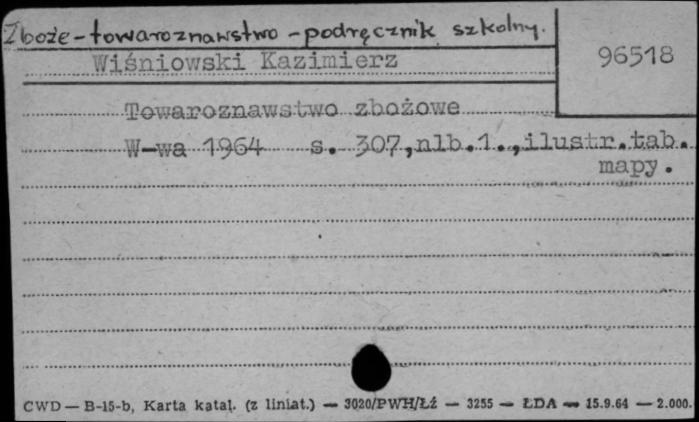 Zboże - towaroznawstwo - podręcznik szkolny.
96518
Wiśniowski Kazimierz
Towaroznawstwo zbożowe
W-wa 1964 s. 307,nlb.1.,ilustr.tab.
mapy.
CWD — B-15-b, Karta katal. (z liniat.) — 3020/PWH/Łź — 3255 — ŁDA — 15.9.64 — 2.000.